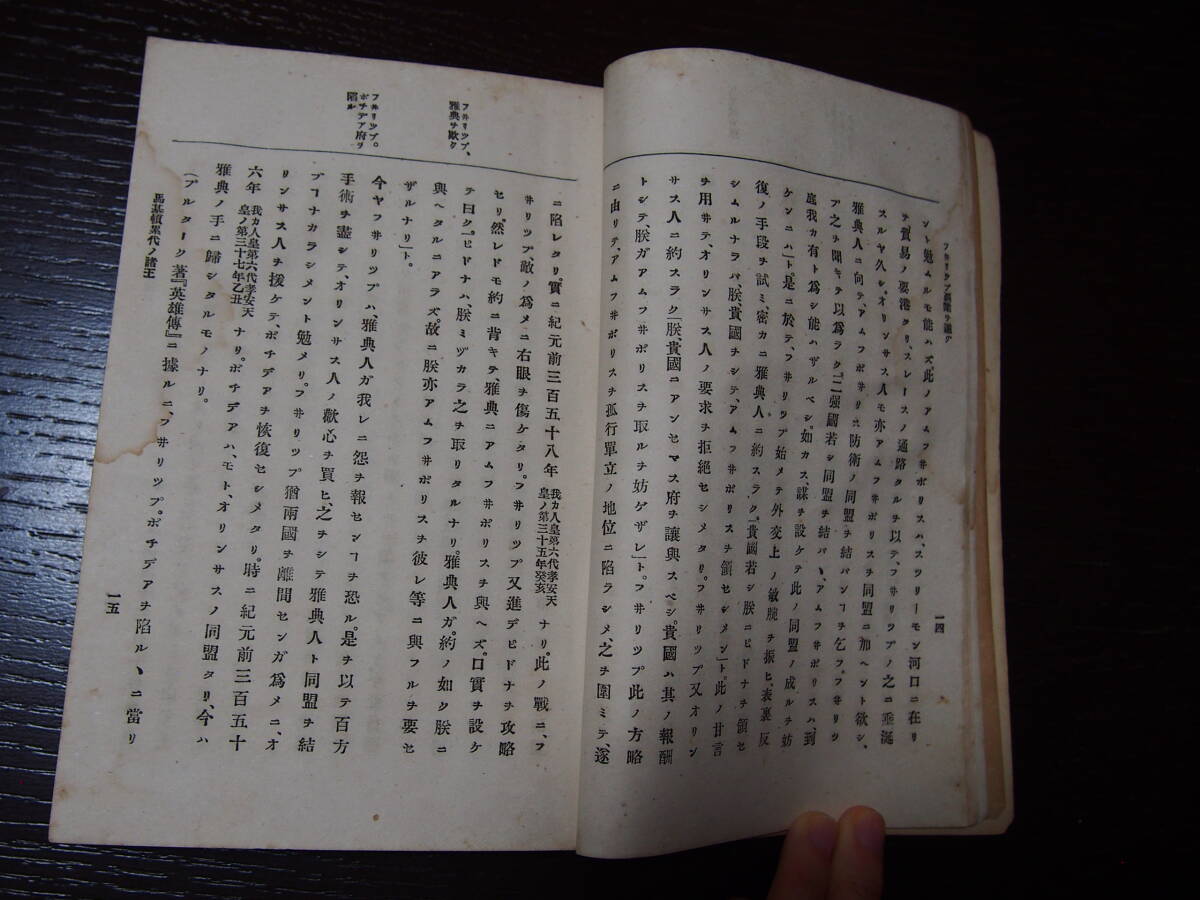 フ井リツプ眞龍ヲ讓ク
一四
ント勉ムルモ能ハズ此ノアムフ井ポリスハ、スツリーモン河口ニ在リ
テ貿易ノ要港タリ、スレースノ通路タルヲ以テ、フ井リツプノ之ニ垂涎
スルヤ久シ。オリンサス人モ亦アムフ井ポリスヲ同盟ニ加ヘント欲シ、
雅典人ニ向テ、アムフ井ポリス防衛ノ同盟ヲ結バンヿヲ乞フ。フ井リツ
プ之ヲ聞キテ以爲ラク、『二强國若シ同盟ヲ結バヽ、アムフ井ポリスハ到
底我カ有ト爲シ能ハザルベシ。如カス、謀ヲ設ケテ此ノ同盟ノ成ルヲ妨
ケンニハ』ト。是ニ於テ、フ井リツプ始メテ外交上ノ敏腕ヲ振ヒ、表裏反
復ノ手段ヲ試ミ、密カニ雅典人ニ約スラク、「貴國若シ朕ニピドナヲ領セ
シムルナラバ、朕、貴國ヲシテ、アムフ井ポリスヲ領セシメン」ト。此ノ甘言
ヲ用井テ、オリンサス人ノ要求ヲ拒絕セシメタリ。フ井リツプ又オリン
サス人ニ約スラク「朕、貴國ニアンセマス府ヲ讓與スベシ。貴國ハ其ノ報酬
トシテ、朕ガアムフ井ポリスヲ取ルヲ妨ゲザレ」ト。フ井リツプ此ノ方略
ニ由リテ、アムフ井ポリスヲ孤行單立ノ地位ニ陷ラシメ、之ヲ圍ミテ、遂
フ井リツプ、
雅典ヲ欺ク
フ井リツプ。
ポチデア府ヲ
陷ル
ニ陷レタリ。實ニ紀元前三百五十八年 我カ人皇第六代孝安天皇ノ第三十五年癸亥 ナリ。此ノ戰ニ、フ
井リツプ、敵ノ爲メニ右眼ヲ傷ケタリ。フ井リツプ又進デピドナヲ攻略
セリ。然レドモ約ニ背キテ、雅典ニアムフ井ポリスヲ與ヘズ。口實ヲ設ケ
テ曰ク。「ピドナハ、朕ミヅカラ之ヲ取リタルナリ。雅典人ガ。約ノ如ク朕ニ
與ヘタルニアラズ。故ニ朕亦アムフ井ポリスヲ彼レ等ニ與フルヲ要セ
ザルナリ」ト。
今ヤフ井リツプハ、雅典人ガ我レニ怨ヲ報センヿヲ恐ル。是ヲ以テ百方
手術ヲ盡シテ、オリンサス人ノ歡心ヲ買ヒ、之ヲシテ雅典人ト同盟ヲ結
ブヿナカラシメント勉メリ。フ井リツプ猶兩國ヲ離間センガ爲メニ、オ
リンサス人ヲ援ケテ、ポチデアヲ恢復セシメタリ時ニ紀元前三百五十
六年 我カ人皇第六代孝安天皇ノ第三十七年乙丑 ナリ。ポチデアハ、モト、オリンサスノ同盟タリ、今ハ
雅典ノ手ニ歸シタルモノナリ。
(プルターク著『英雄傳』ニ據ルニ、フ井リツプ。ポチデアヲ陷ルヽニ當リ
馬基頓累代ノ諸王
一五